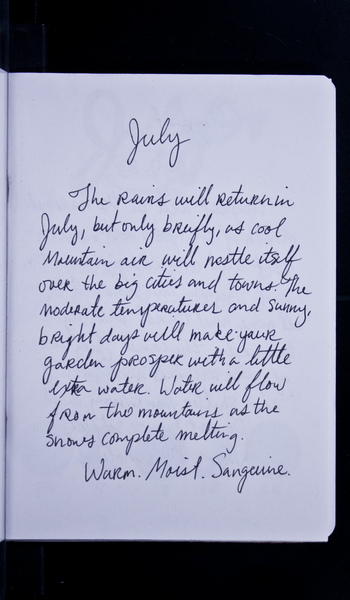 July
The rains will return in
July, but only breifly, as cool
Mountain air will nestle itself
over the big cities and towns. The
moderate temperatures and sunny,
bright days will make your
garden prosper with a little
extra water. Water will flow
from the mountains as the
snows complete melting.
Warm. Moist. Sanguine.